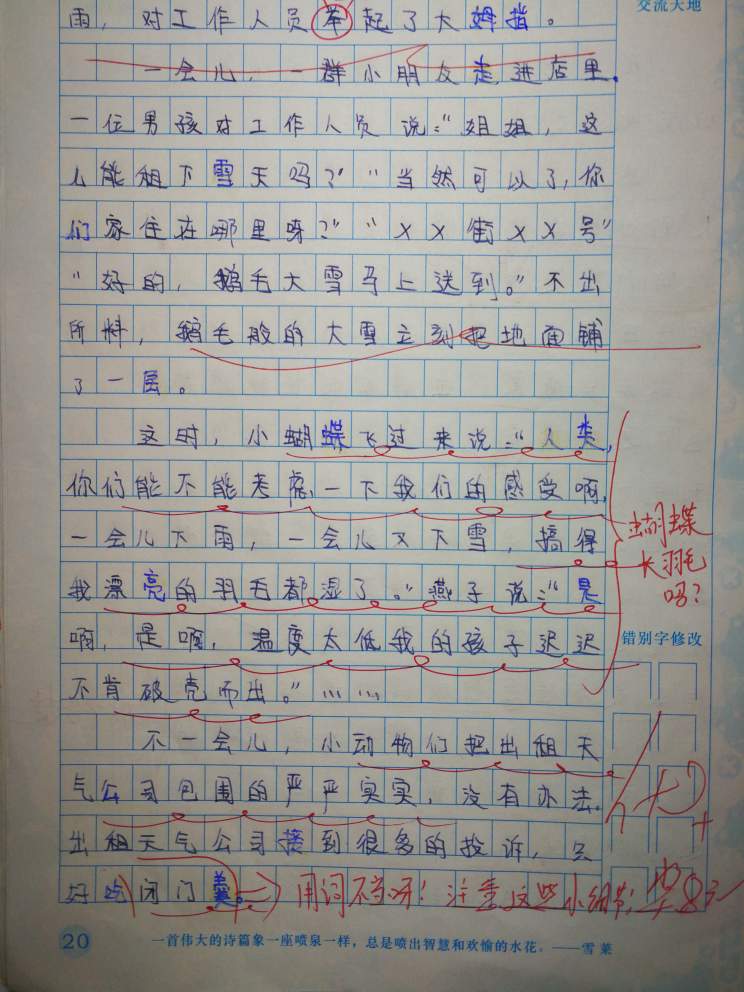 交流天地
雨，对工作人员举起了大姆指。
一会儿，一群小朋友走进店里。
一位男孩对工作人员说："姐姐，这
儿能租下雪天吗？""当然可以了，你
们家住在哪里呀？""××街××号"
"好的，鹅毛大雪马上送到。"不出
所料，鹅毛般的大雪立刻把地面铺
了一层。
这时，小蝴蝶飞过来说："人类，
你们能不能考虑一下我们的感受啊，
一会儿下雨，一会儿又下雪，搞得
我漂亮的羽毛都湿了。"燕子说："是
啊，是啊，温度太低我的孩子迟迟
不肯破壳而出。"……
蝴蝶
长羽毛
吗？
错别字修改
不一会儿，小动物们把出租天
气公司包围的严严实实，没有办法，
出租天气公司接到很多的投诉，只
好吃闭门羹。
用词不当呀！注意这些小细节！
20
一首伟大的诗篇象一座喷泉一样，总是喷出智慧和欢愉的水花。——雪 莱